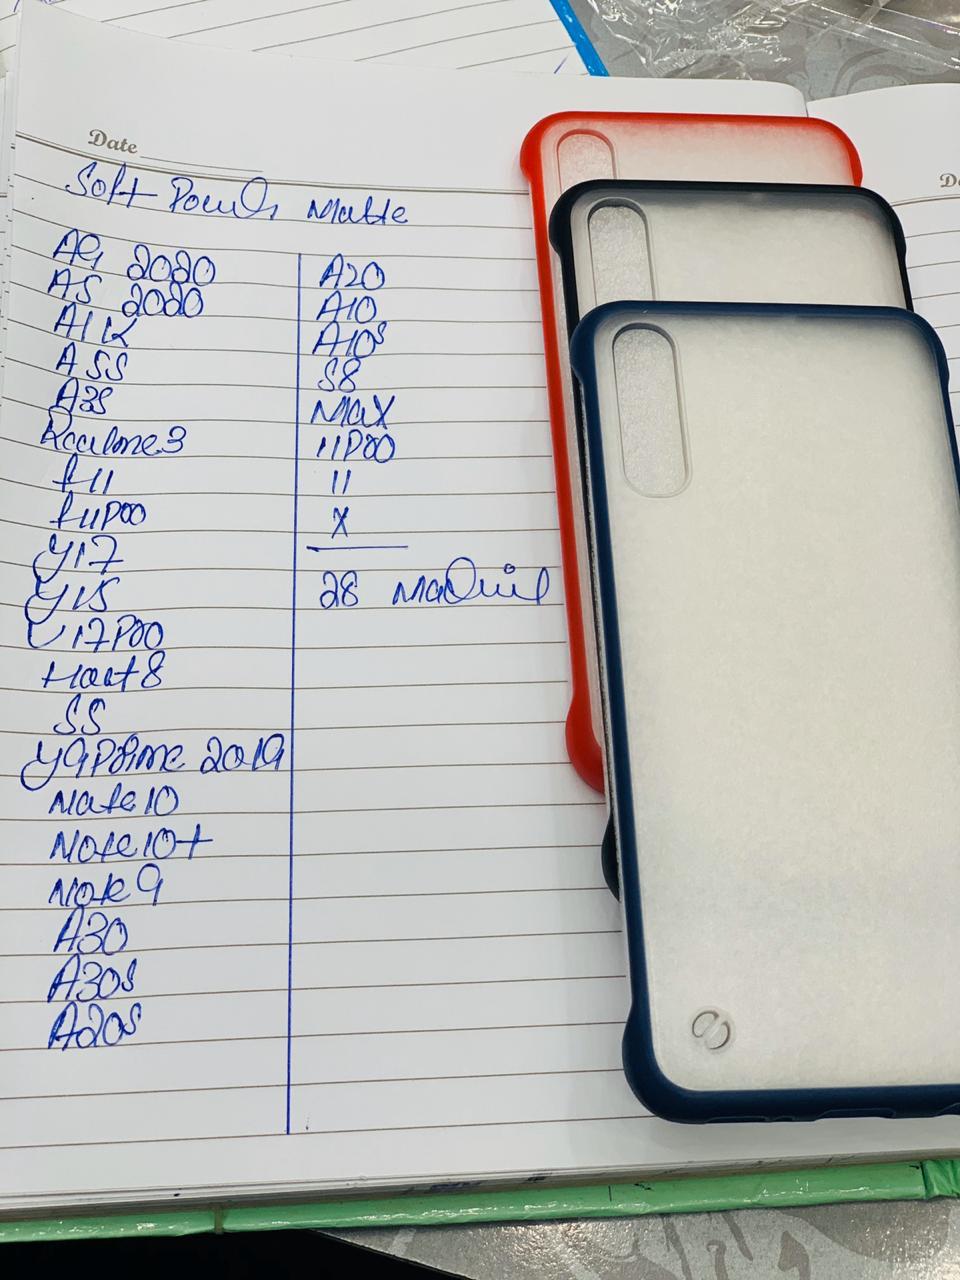 Date
Soft Pouch Matte
A9 2020
A5 2020
A1K
A5S
A3S
Realme3
f11
f11Pro
Y17
Y15
V17Pro
Hoat8
S5
Y9Prime 2019
Note10
Note10+
Note9
A30
A30s
A20s
A20
A10
A10s
S8
Max
11Pro
11
X
28